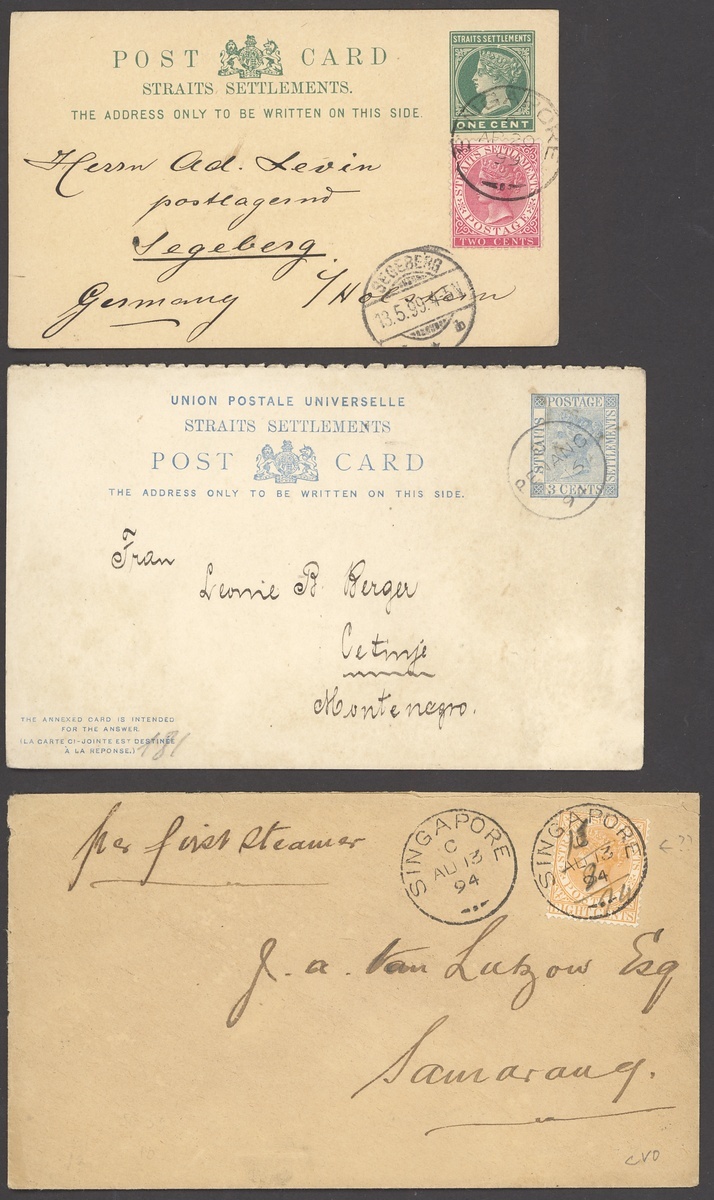 POST CARD
STRAITS SETTLEMENTS.
THE ADDRESS ONLY TO BE WRITTEN ON THIS SIDE.
STRAITS SETTLEMENTS
ONE CENT
SINGAPORE
STRAITS SETTLEMENTS
POSTAGE
TWO CENTS
Herrn Ad. Levin
postlagernd
Segeberg.
Germany i/Holstein
SEGEBERG
18.5.99.4-5N
b
UNION POSTALE UNIVERSELLE
STRAITS SETTLEMENTS
POST CARD
THE ADDRESS ONLY TO BE WRITTEN ON THIS SIDE.
POSTAGE
STRAITS
SETTLEMENTS
3 CENTS
PENANG
Frau
Leonie B. Berger
Cetinje
Montenegro.
THE ANNEXED CARD IS INTENDED
FOR THE ANSWER.
(LA CARTE CI-JOINTE EST DESTINÉE
À LA RÉPONSE.)
181
per first steamer
SINGAPORE
C
AU 13
94
SINGAPORE
AU 13
94
EIGHT CENTS
← ??
J. a. Van Lutzow Esq
Samarang.
cvo